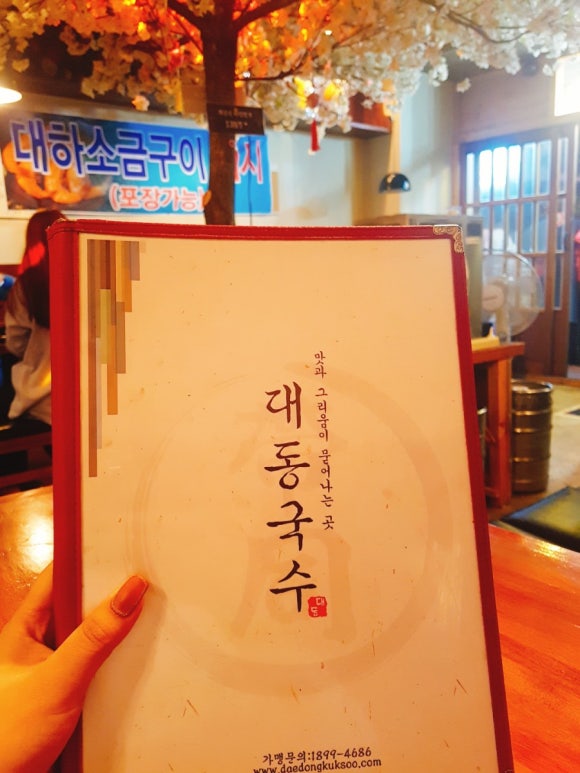 대하소금구이
(포장가능)
맛과 그리움이 묻어나는 곳
대동국수
대동
가맹문의:1899-4686
www.daedongkuksoo.com